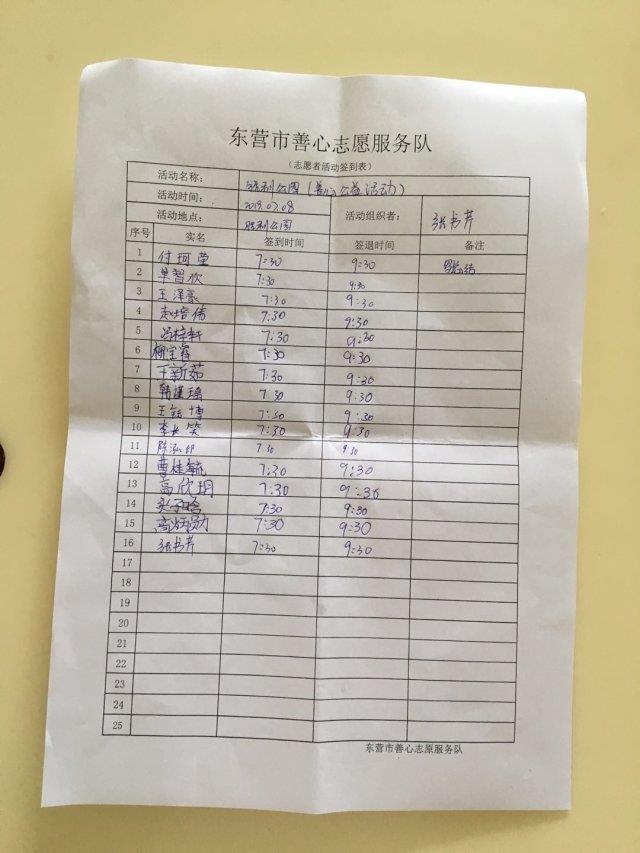 东营市善心志愿服务队
（志愿者活动签到表）
活动名称： 胜利公园（善心公益活动）
活动时间： 2019.07.08
活动地点： 胜利公园 活动组织者： 张书芹
序号 实名 签到时间 签退时间 备注
1 付珂莹 7:30 9:30
2 单智欣 7:30 9:30
3 王泽豪 7:30 9:30
4 赵培伟 7:30 9:30
5 冯梓轩 7:30 9:30
6 7:30 9:30
7 王新茹 7:30 9:30
8 韩建瑶 7:30 9:30
9 王钰博 7:30 9:30
10 李长笑 7:30 9:30
11 7:30 9:30
12 曹桂毓 7:30 9:30
13 高欣玥 7:30 9:30
14 7:30 9:30
15 高炳勋 7:30 9:30
16 张书芹 7:30 9:30
17
18
19
20
21
22
23
24
25
东营市善心志愿服务队